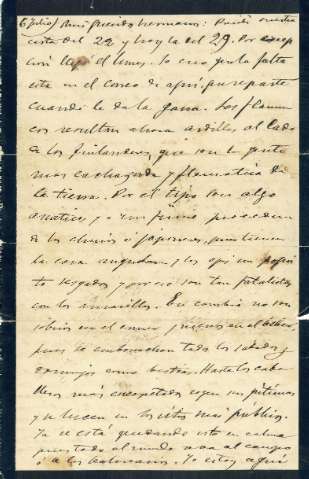 6 Julio) Mis queridos hermanos: Recibí vuestra
carta del 22 y hoy la del 29. Por excep
ción llegó el lunes. Yo creo que la falta
está en el correo de aquí, que reparte
cuando le da la gana. Los flamen
cos resultan ahora ardillas al lado
de los finlandeses, que son la gente
mas cachazuda y flematica de
la tierra. Por el tipo son algo
asiaticos y a mi juicio proceden
de los chinos ó japoneses, pues tienen
la cara angulosa y los ojos un poqui
to sesgados y por eso son tan fatalistas
como los amarillos. En cambio no son
sobrios en el comer y menos en el beber,
pues se emborrachan todos los sabados y
domingos como bestias. Hasta los caba
lleros más encopetados cogen sus pítimas
y se lucen en los sitios mas públicos.
Ya se está quedando esto en calma
pues todo el mundo se va al campo
ó á los balnearios. Yo estoy aquí